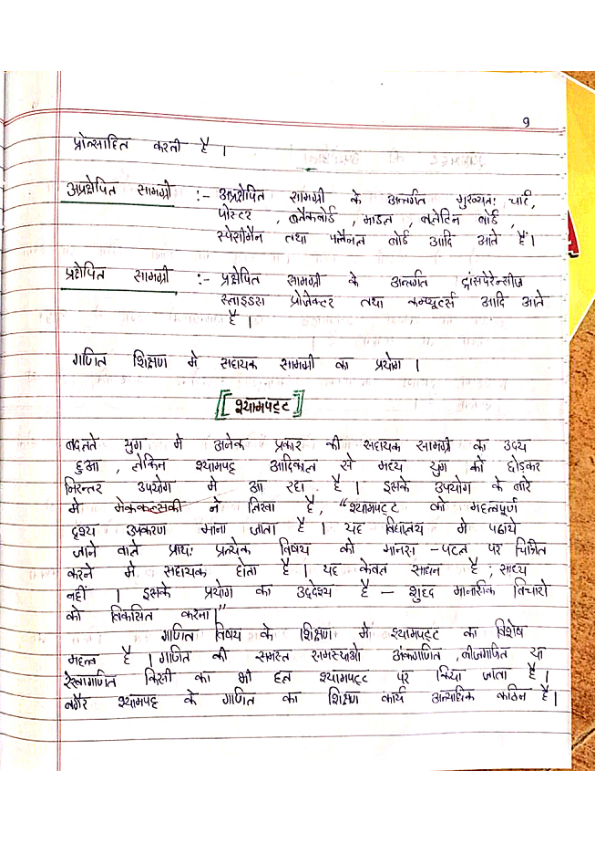 9
प्रोत्साहित करती है ।
अप्रक्षेपित सामग्री :- अप्रक्षेपित सामग्री के अन्तर्गत मुख्यतः चार्ट,
पोस्टर , ब्लैकबोर्ड , माडल , बुलेटिन बोर्ड ,
स्पेसीमैन तथा फ्लैनल बोर्ड आदि आते हैं।
प्रक्षेपित सामग्री :- प्रक्षेपित सामग्री के अन्तर्गत ट्रांसपेरेन्सीज
स्लाइडस प्रोजेक्टर तथा कम्प्यूटर्स आदि आते
है ।
गणित शिक्षण मे सहायक सामग्री का प्रयोग ।
[श्यामपट्ट]
बदलते युग मे अनेक प्रकार की सहायक सामग्री का उदय
हुआ , लेकिन श्यामपट्ट आदिकाल से मध्य युग को छोड़कर
निरन्तर उपयोग मे आ रहा है । इसके उपयोग के बारे
मे मेककल्सकी ने लिखा है, "श्यामपट्ट को महत्वपूर्ण
दृश्य उपकरण माना जाता है । यह विद्यालय मे पढाये
जाने वाले प्रायः प्रत्येक विषय को मानस -पटल पर चित्रित
करने मे सहायक होता है । यह केवल साधन है ; साध्य
नहीं । इसके प्रयोग का उददेश्य है – शुद्द मानसिक विचारो
को विकसित करना।"
गणित विषय के शिक्षण मे श्यामपट्ट का विशेष
महत्व है । गणित की समस्त समस्याओ अंकगणित , बीजगणित या
रेखागणित किसी का भी हल श्यामपट्ट पर किया जाता है ।
बगैर श्यामपट्ट के गणित का शिक्षण कार्य अत्याधिक कठिन है।